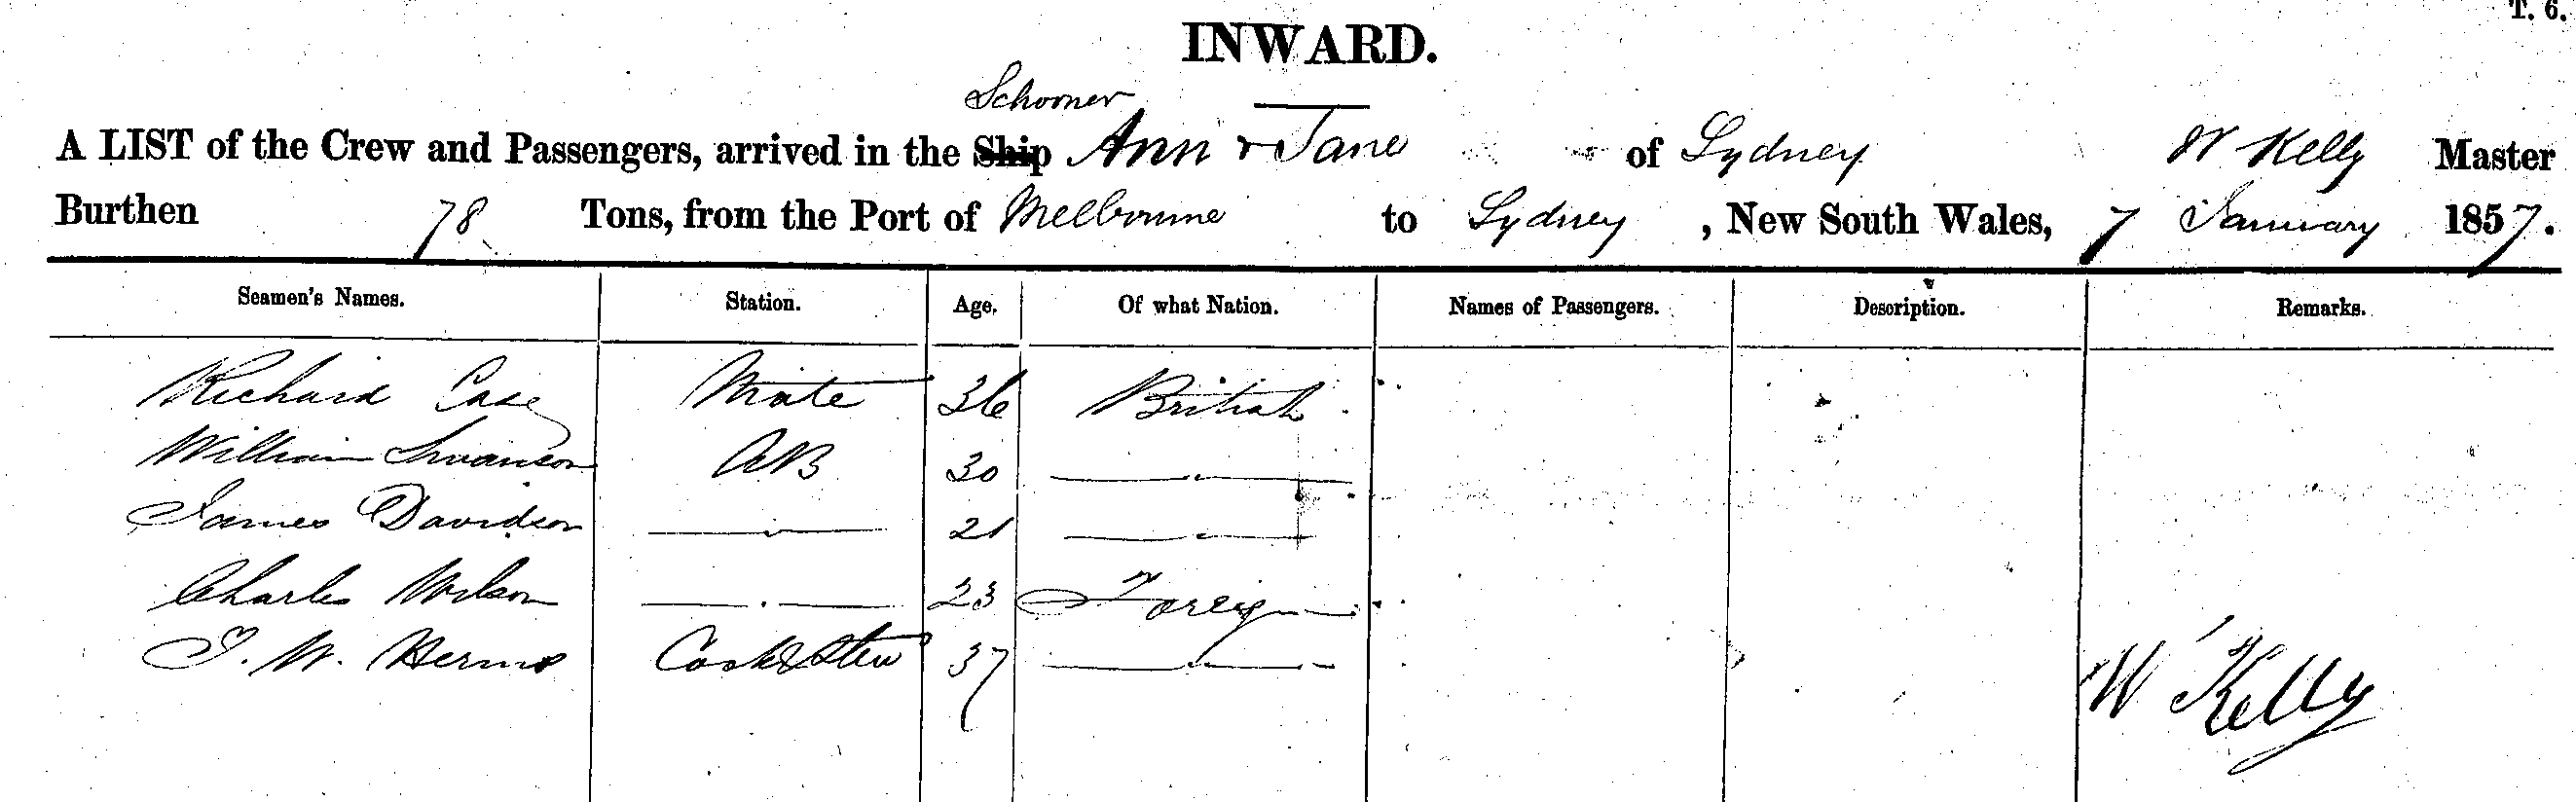 T. 6.
INWARD.
Schooner
A LIST of the Crew and Passengers, arrived in the Ship Ann & Jane of Sydney W Kelly Master
Burthen 78 Tons, from the Port of Melbourne to Sydney, New South Wales, 7 January 1857.
Seamen's Names. Station. Age. Of what Nation. Names of Passengers. Description. Remarks.
Richard Case Mate 36 British
William Swanson AB 30 — " —
James Davidson — " — 21 — " —
Charles Wilson — " — 23 Foreign
J. W. Herms Cook & Stew 37 — " —
W Kelly